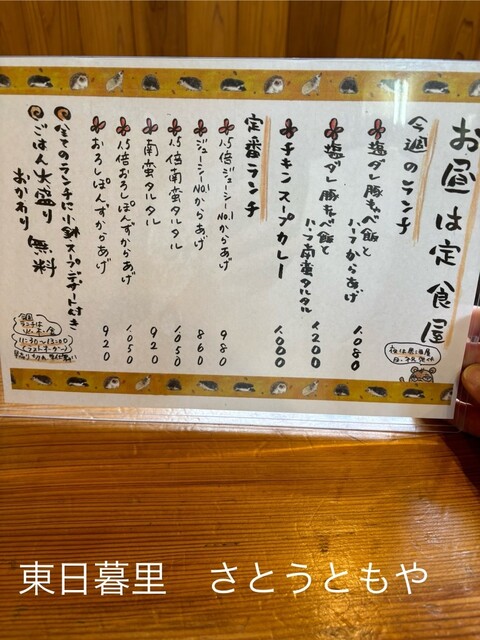 お昼は定食屋
今週のランチ
塩ダレ豚キャベ飯と
ハーフからあげ 1,080
塩ダレ豚キャベ飯と
ハーフ南蛮タルタル 1,200
チキンスープカレー 1,000
定番ランチ
1.5倍ジューシーNo.1からあげ 980
ジューシーNo.1からあげ 860
1.5倍南蛮タルタル 1,050
南蛮タルタル 920
1.5倍おろしぽんずからあげ 1,050
おろしぽんずからあげ 920
全てのランチに小鉢スープデザート付き
ごはん大盛り 無料
おかわり
夜は居酒屋
ランチは
火・木・金
11:30〜13:00
東日暮里 さとうともや